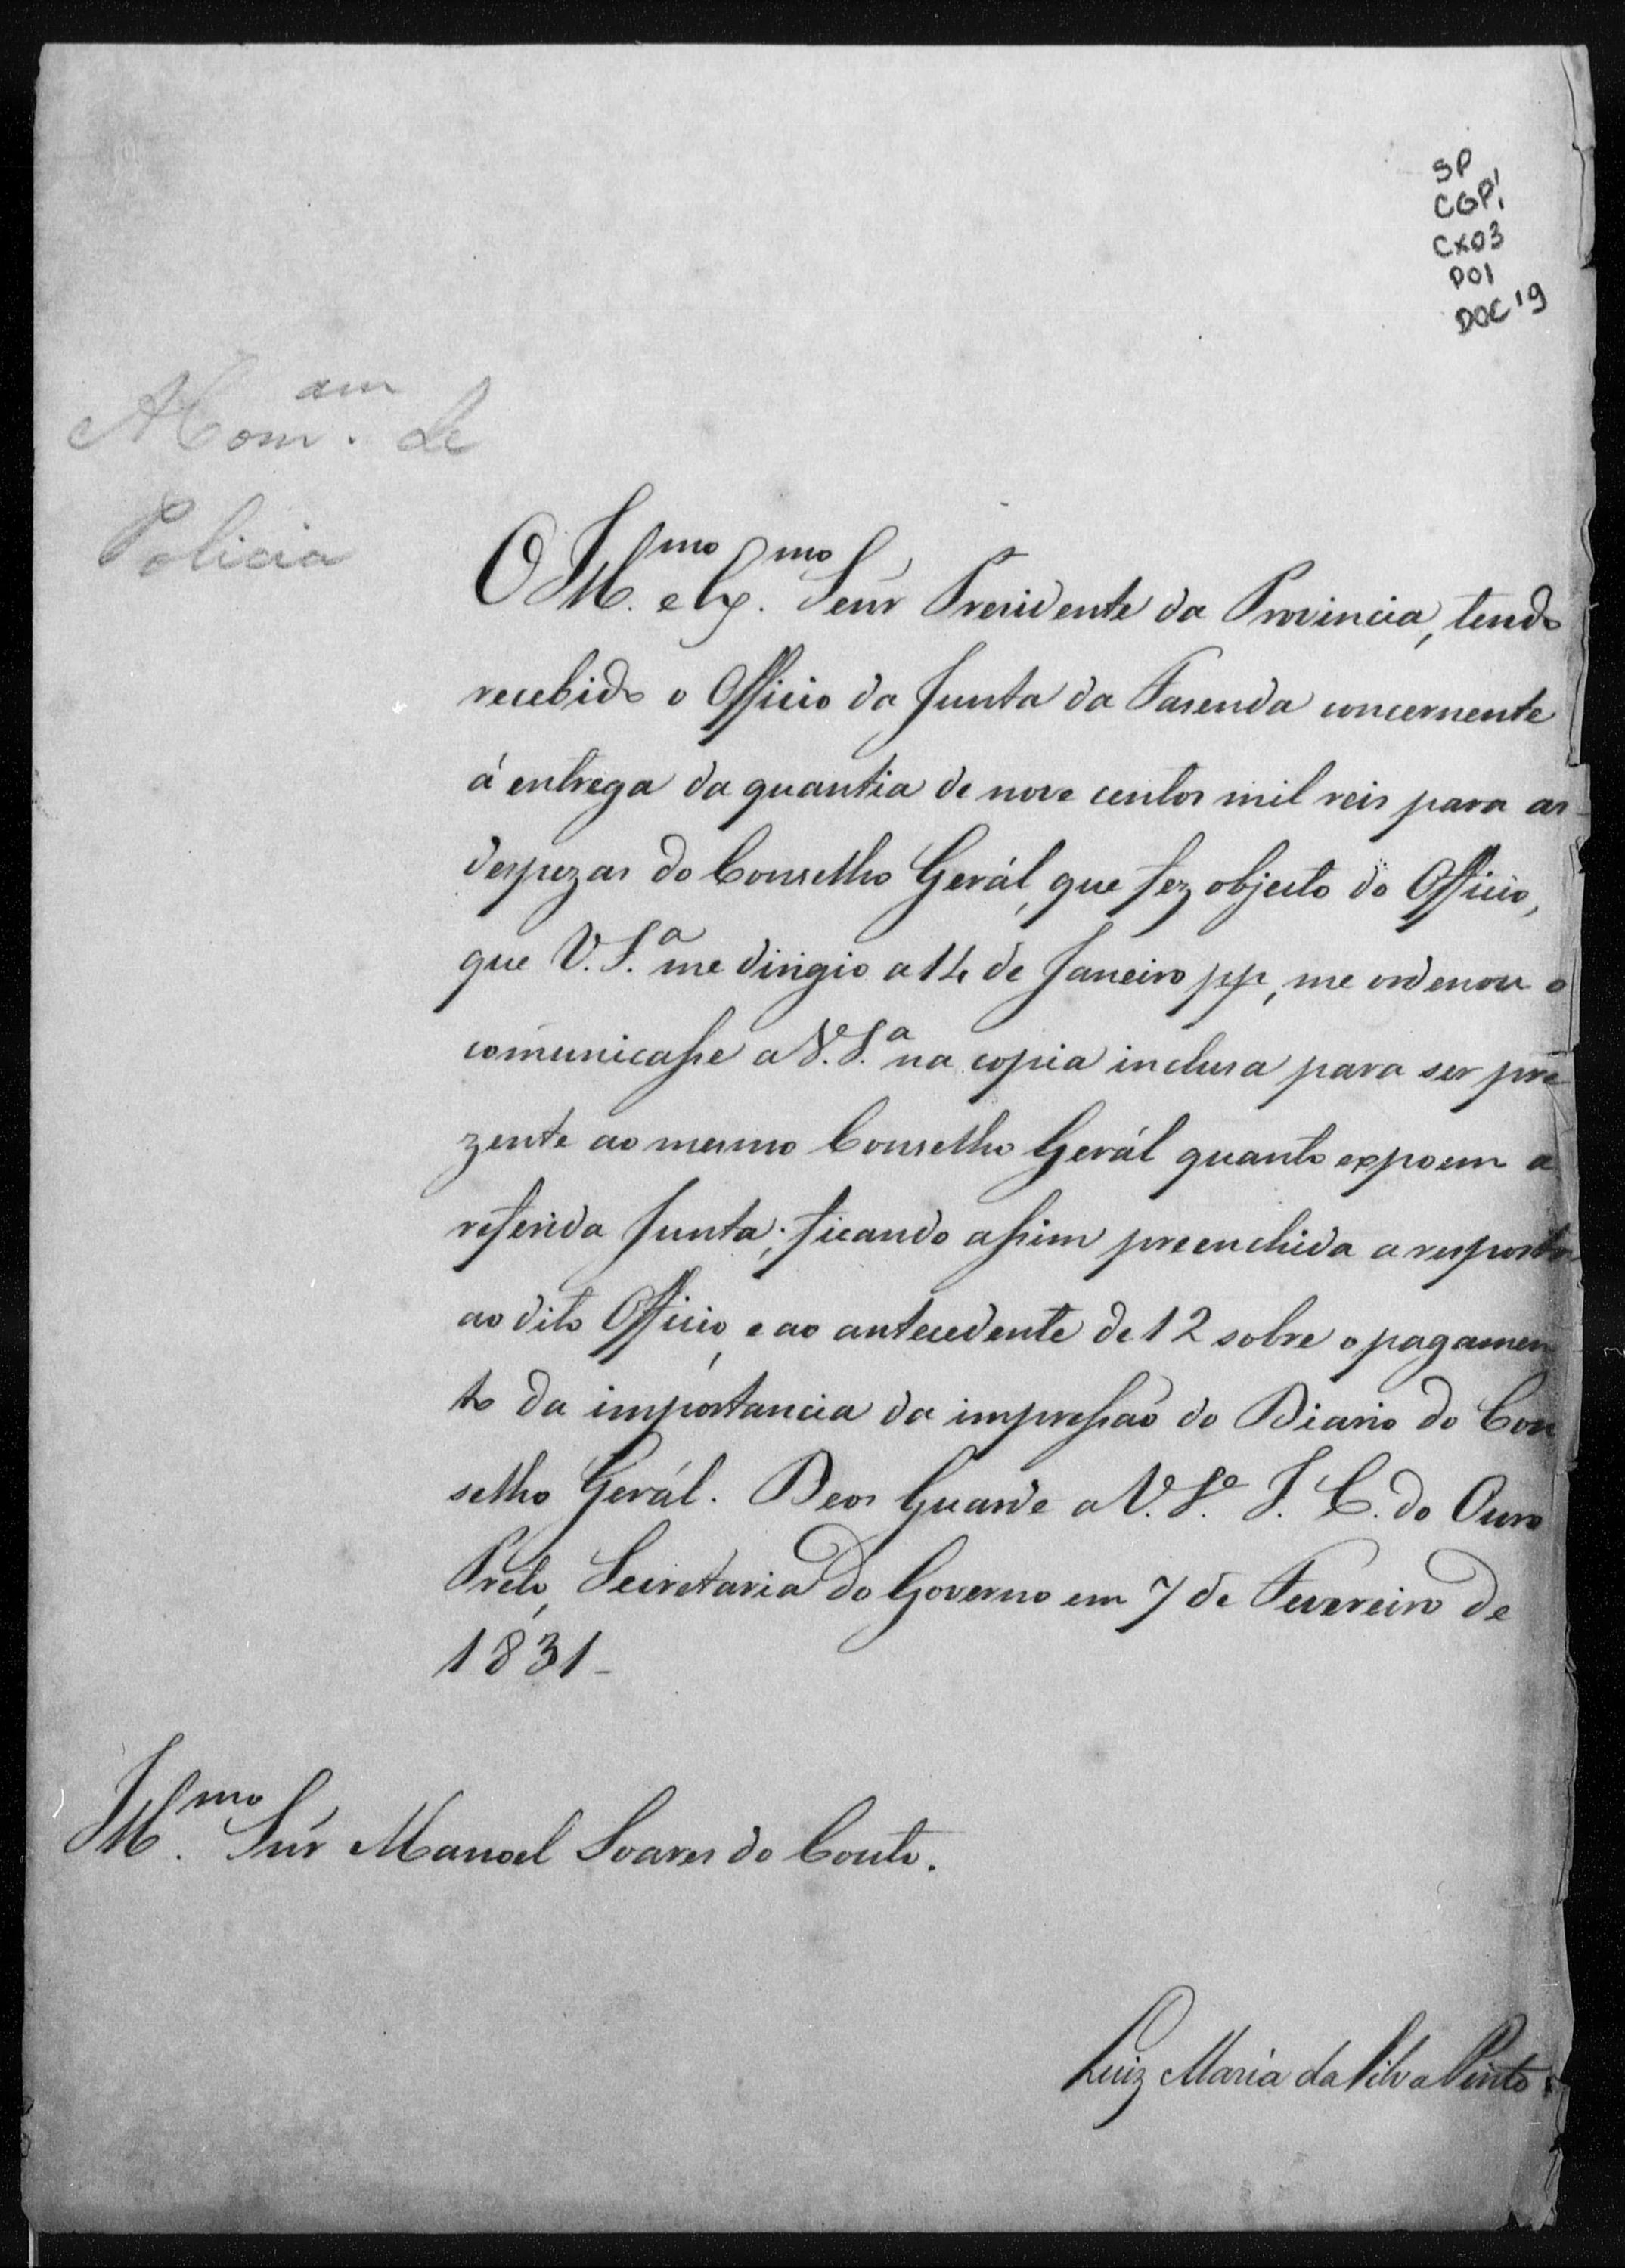 SP
CGP1
CX03
P01
DOC 19
A Com.am de
Policia
O Ill.mo e Ex.mo Senr Presidente da Provincia, tendo
recebido o Officio da Junta da Fasenda concernente
á entrega da quantia de nove centos mil reis para as
despezas do Conselho Gerál, que fez objecto do Officio,
que V. S.a me dirigio a 14 de Janeiro pp, me ordenou o
comunicasse a V. S.a na copia inclusa para ser pre
zente ao mesmo Conselho Gerál quanto expoem a
referida Junta; ficando assim preenchida a resposta
ao dito Officio, e ao antecedente de 12 sobre o pagamen
to da importancia da impressaõ do Diario do Con
selho Gerál. Deos Guarde a V. S.a I. C. do Ouro
Preto, Secretaria do Governo em 7 de Fevereiro de
1831 -
Ill.mo Snr Manoel Soares do Couto.
Luiz Maria da Silva Pinto.